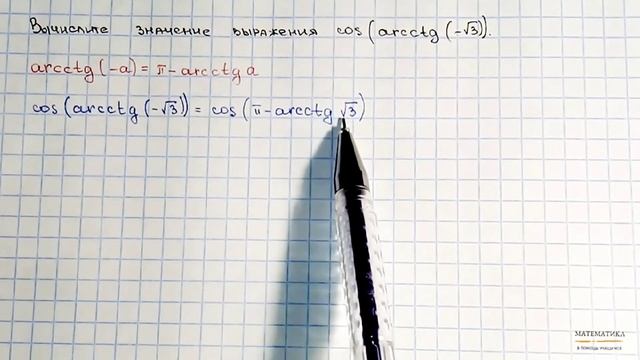 Вычислите значение выражения cos(arcctg(-√3)).
arcctg(-a) = π - arcctg a
cos(arcctg(-√3)) = cos(π - arcctg √3)
МАТЕМАТИКА
В ПОМОЩЬ УЧАЩИМСЯ